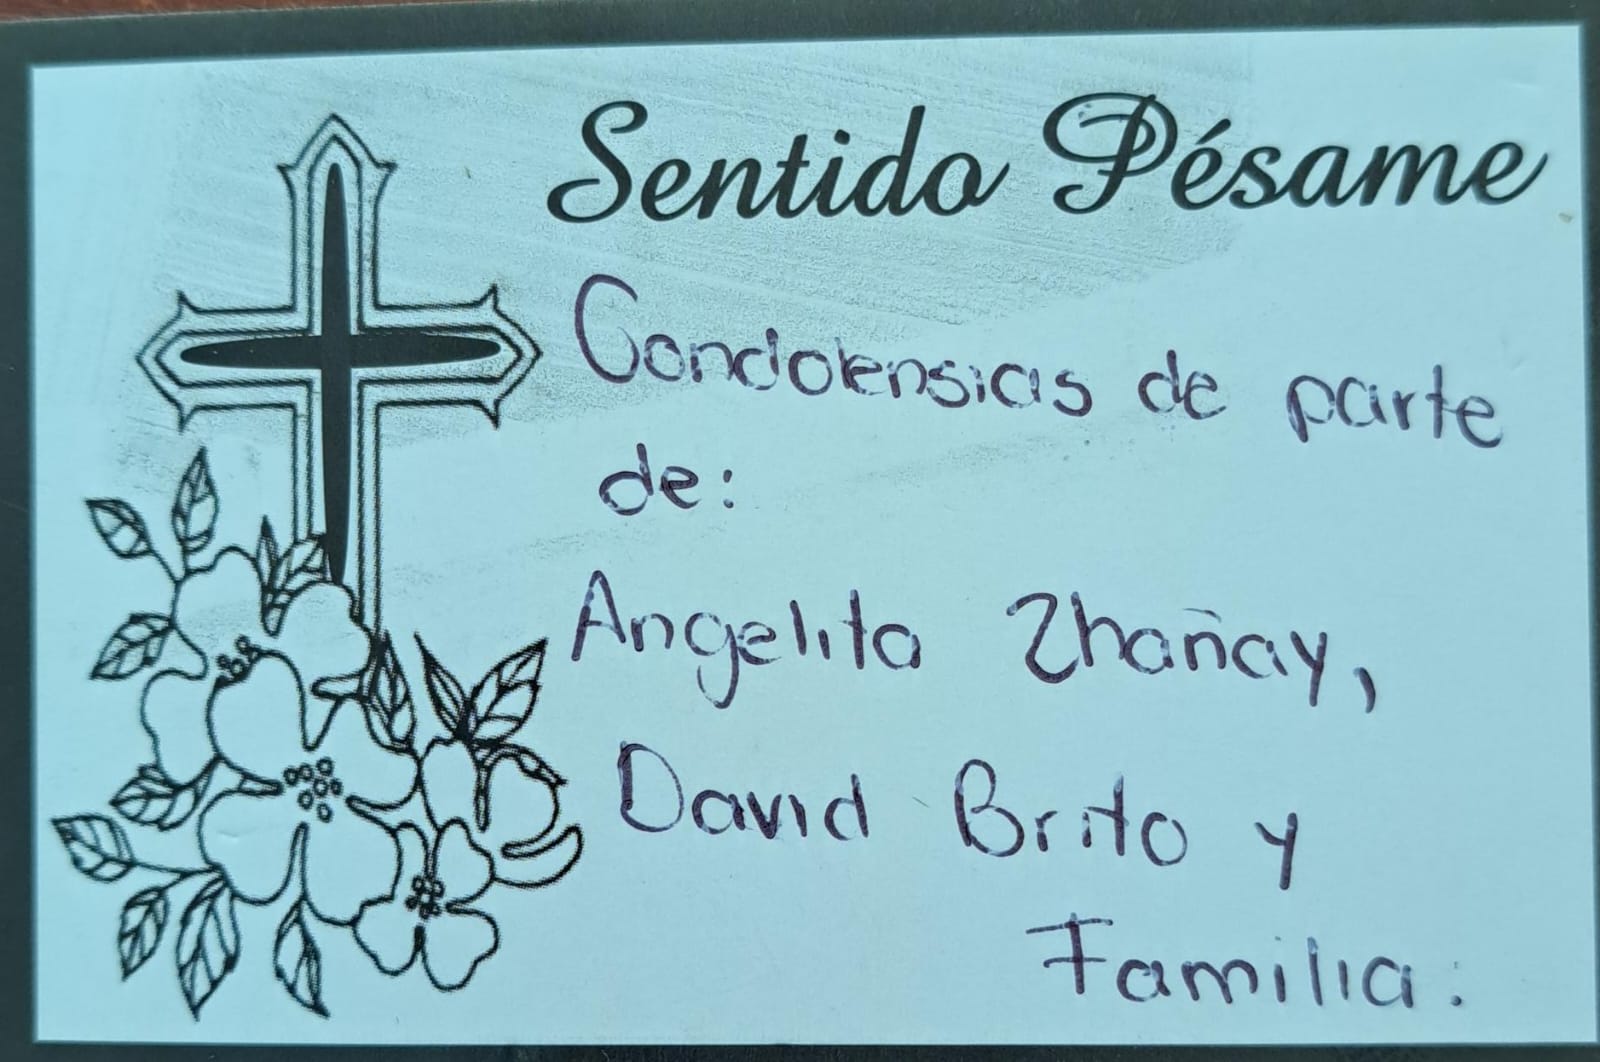 Sentido Pésame
Condolensias de parte
de:
Angelita Zhañay,
David Brito y
Familia: